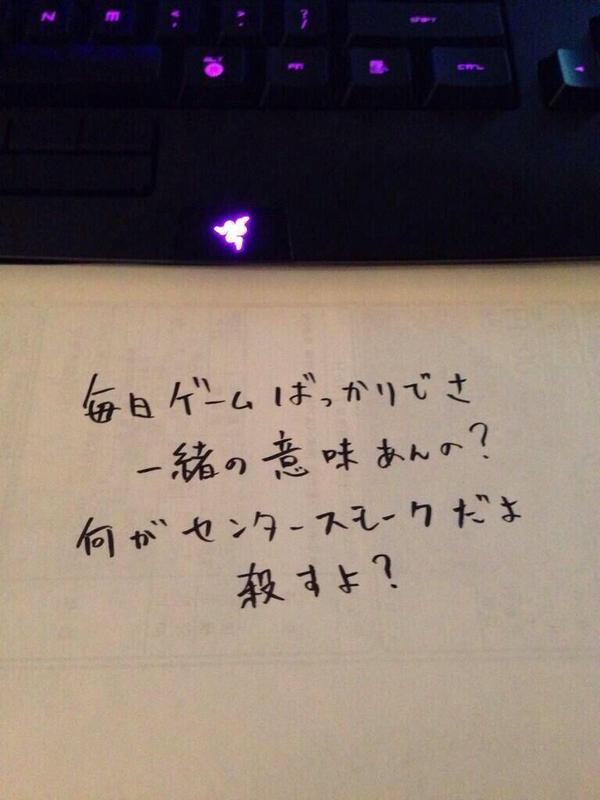 N M < , > . ? /
SHIFT
ALT FN CTRL
毎日ゲームばっかりでさ
一緒の意味あんの?
何がセンタースモークだよ
殺すよ?